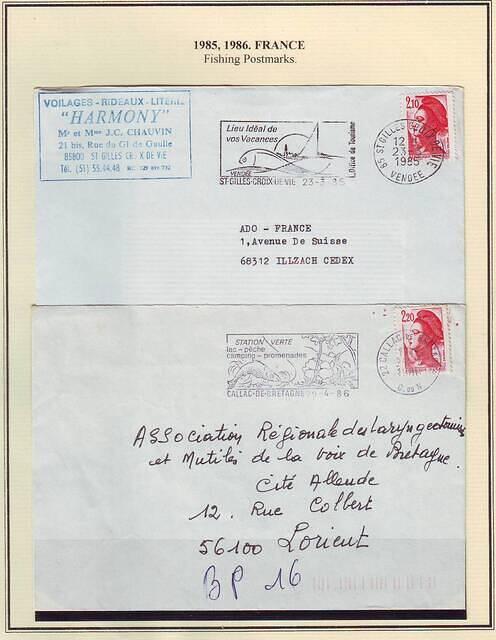 1985, 1986. FRANCE
Fishing Postmarks.
VOILAGES - RIDEAUX - LITERIE
"HARMONY"
Mr et Mme J.C. CHAUVIN
21 bis, Rue du Gl de Gaulle
85800 ST GILLES CROIX DE VIE
Tél. (51) 55.04.48
Lieu Idéal de
vos Vacances
VENDEE
Office de Tourisme
ST-GILLES-CROIX-DE-VIE 23-3-85
2,10
85 ST GILLES CROIX DE VIE
12 H
23-3
1985
VENDEE
ADO - FRANCE
1,Avenue De Suisse
68312 ILLZACH CEDEX
STATION VERTE
lac - pêche
camping - promenades
CALLAC-DE-BRETAGNE 29-4-86
2,20
22 CALLAC
C. du N
Association Régionale des laryngectomisés
et Mutilés de la voix de Bretagne.
Cité Allende
12. Rue Colbert
56100 Lorient
BP 16